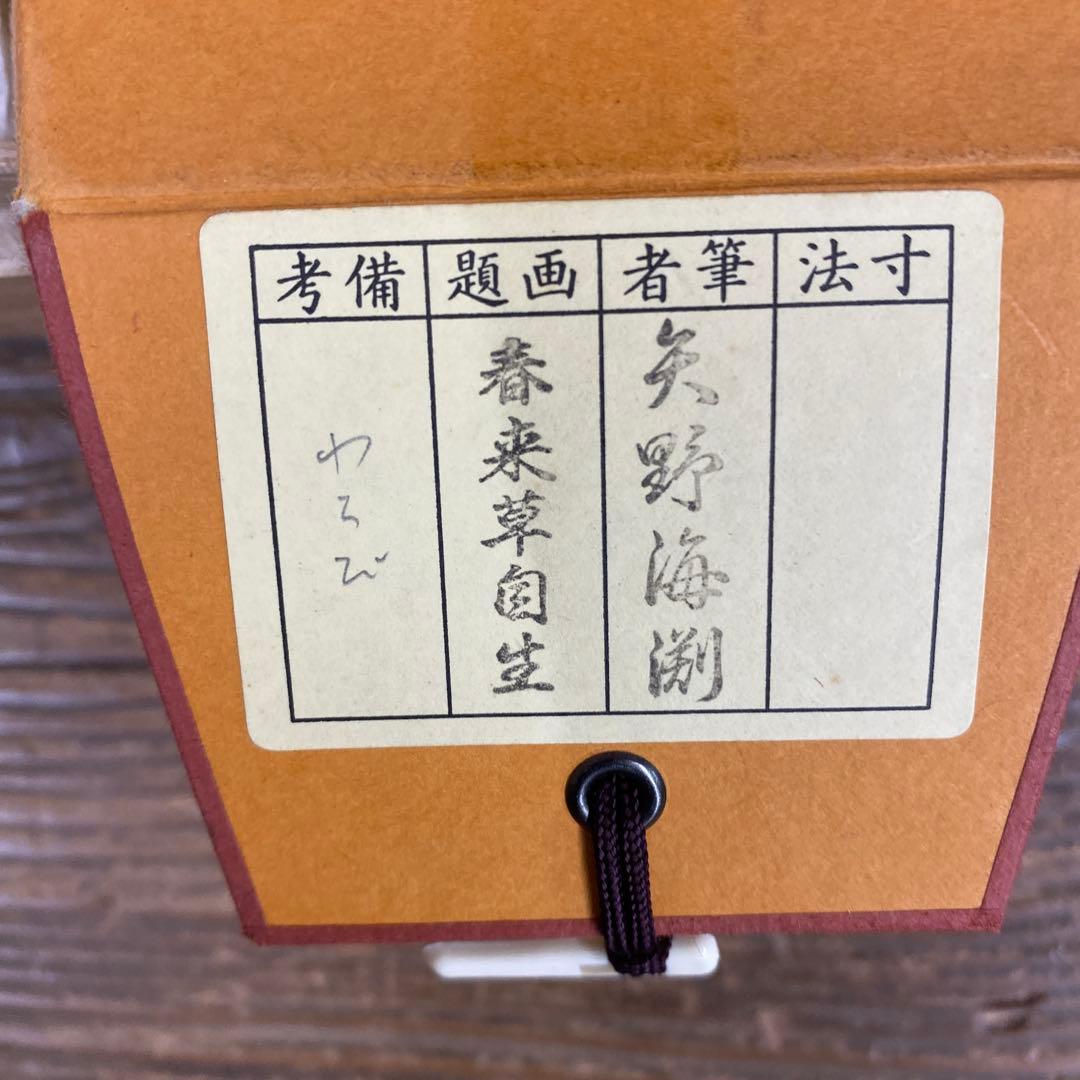 寸法
筆者
矢野海渕
画題
春来草自生
備考
わらび